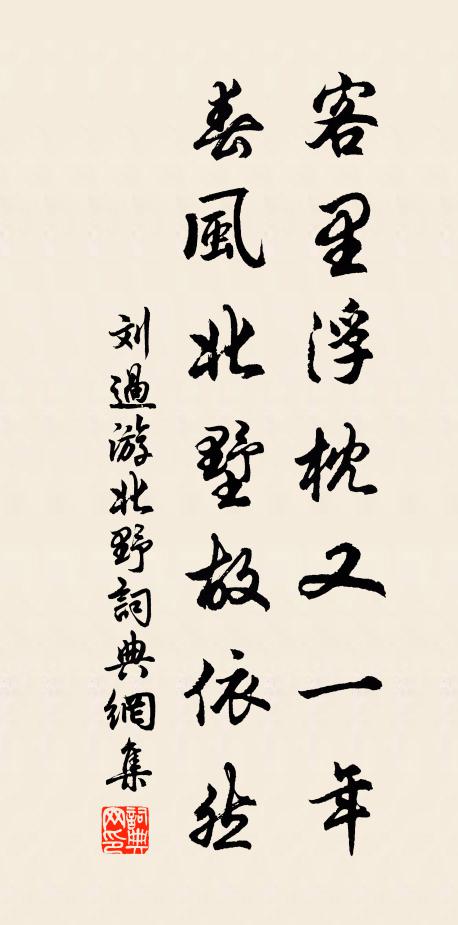 客里浮枕又一年
春風北墅故依然
刘過游北野詞典網集
詞典網印